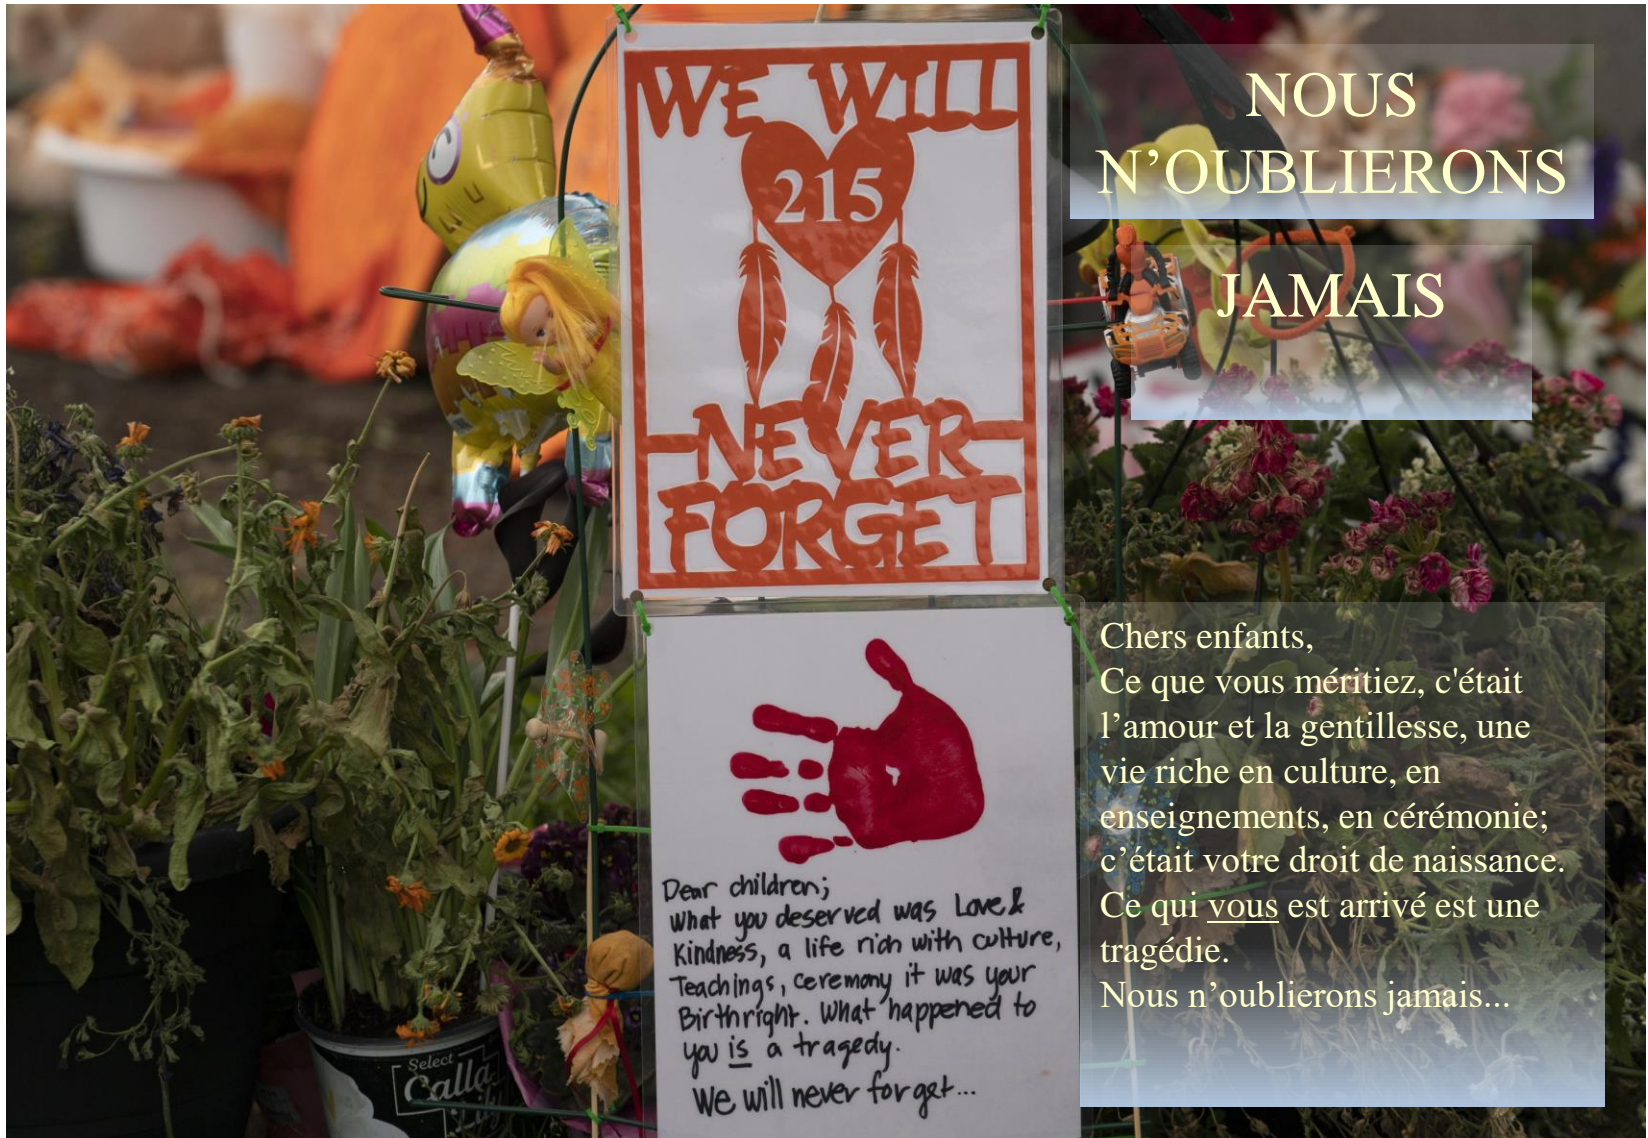 WE WILL
215
NEVER
FORGET
Dear children;
What you deserved was Love &
Kindness, a life rich with culture,
Teachings, ceremony it was your
Birthright. What happened to
you is a tragedy.
We will never forget...
Select
Calla
Lily
NOUS
N’OUBLIERONS
JAMAIS
Chers enfants,
Ce que vous méritiez, c'était
l’amour et la gentillesse, une
vie riche en culture, en
enseignements, en cérémonie;
c’était votre droit de naissance.
Ce qui vous est arrivé est une
tragédie.
Nous n’oublierons jamais...